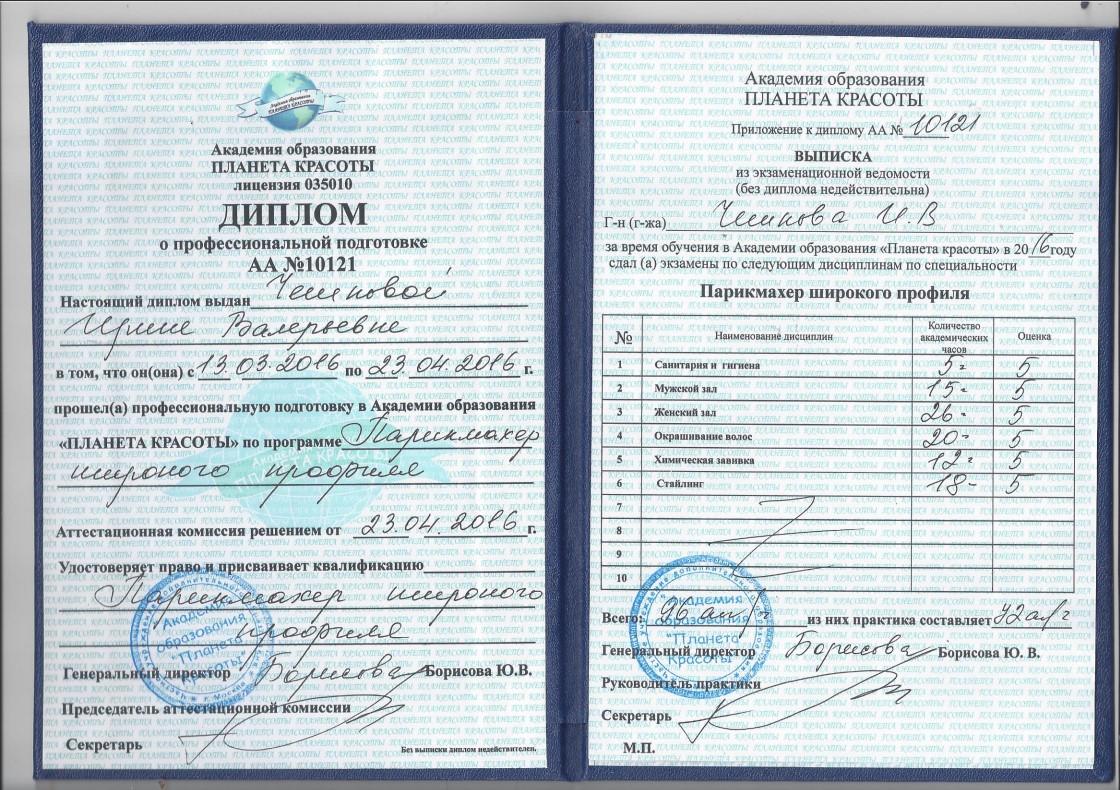 Академия образования
ПЛАНЕТА КРАСОТЫ
Академия образования
ПЛАНЕТА КРАСОТЫ
лицензия 035010
ДИПЛОМ
о профессиональной подготовке
АА №10121
Настоящий диплом выдан
Ирине Валерьевне
в том, что он(она) с 13.03.2016 по 23.04.2016 г.
прошел(а) профессиональную подготовку в Академии образования
«ПЛАНЕТА КРАСОТЫ» по программе Парикмахер
широкого профиля
Аттестационная комиссия решением от 23.04.2016 г.
Удостоверяет право и присваивает квалификацию
Парикмахер широкого
профиля
Генеральный директор Борисова Борисова Ю.В.
Председатель аттестационной комиссии
Секретарь
Без выписки диплом недействителен.
Академия
образования
"Планета
Красоты"
Академия образования
ПЛАНЕТА КРАСОТЫ
Приложение к диплому АА № 10121
ВЫПИСКА
из экзаменационной ведомости
(без диплома недействительна)
Г-н (г-жа) И.В
за время обучения в Академии образования «Планета красоты» в 2016 году
сдал (а) экзамены по следующим дисциплинам по специальности
Парикмахер широкого профиля
№ Наименование дисциплин Количество академических часов Оценка
1 Санитария и гигиена 5- 5
2 Мужской зал 15- 5
3 Женский зал 26- 5
4 Окрашивание волос 20- 5
5 Химическая завивка 12- 5
6 Стайлинг 18- 5
7
8
9
10
Всего: 96 ак/ч из них практика составляет 72 ак/ч
Генеральный директор Борисова Борисова Ю. В.
Руководитель практики
Секретарь
М.П.
Академия
образования
"Планета
Красоты"